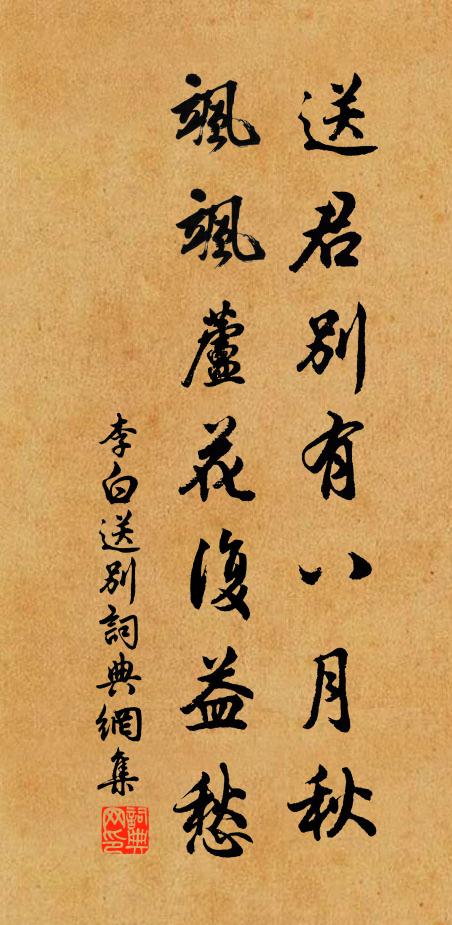 送君別有八月秋
颯颯蘆花復益愁
李白送別詞典網集
詞典网印